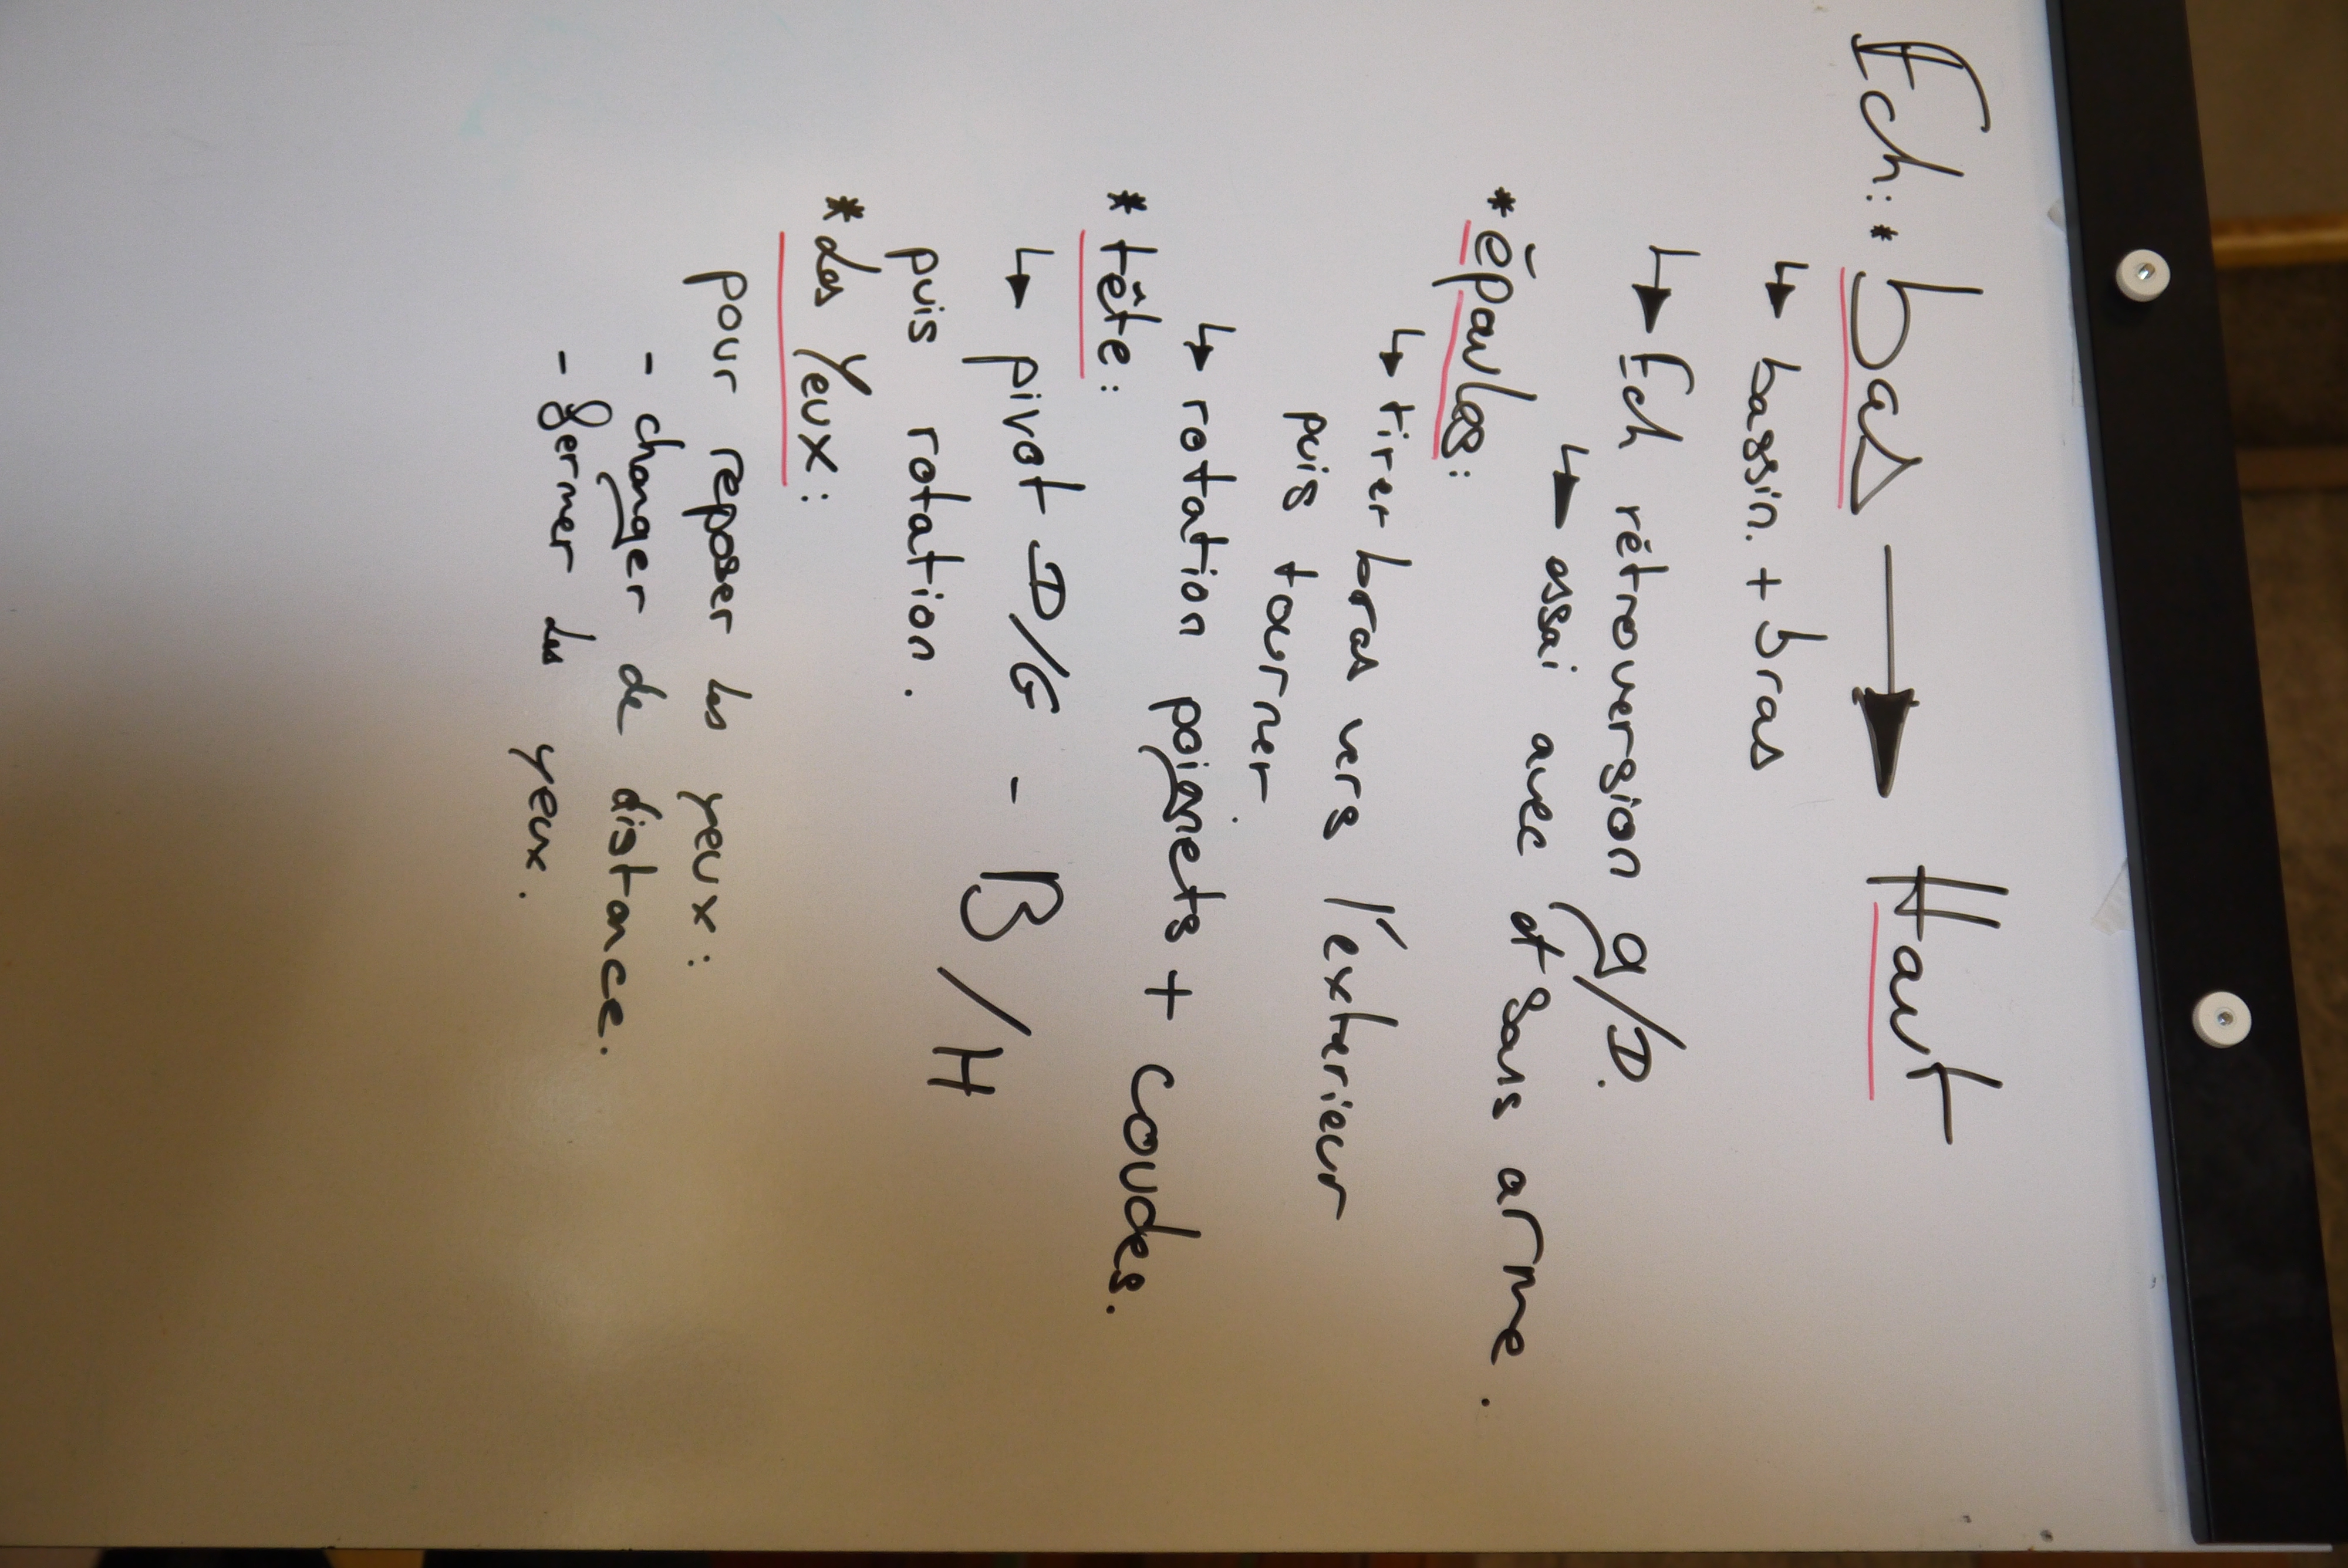 Ech: * bas → Haut
↳ bassin. + bras
↳ Ech rétroversion g/D.
↳ essai avec et sans arme.
* épaules:
↳ tirer bras vers l'exterieur
puis tourner
↳ rotation poignets + coudes.
* tête:
↳ pivot D/G - B/H
puis rotation.
* les Yeux:
pour reposer les yeux:
- changer de distance.
- fermer les yeux.